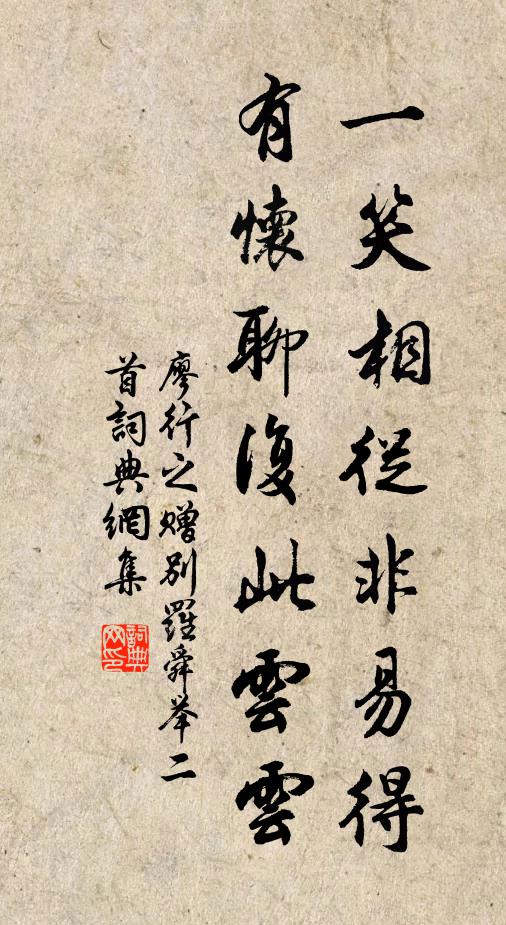 一笑相從非易得
有懷聊復此雲雲
廖行之贈別羅舜举二
首詞典網集
詞典网印